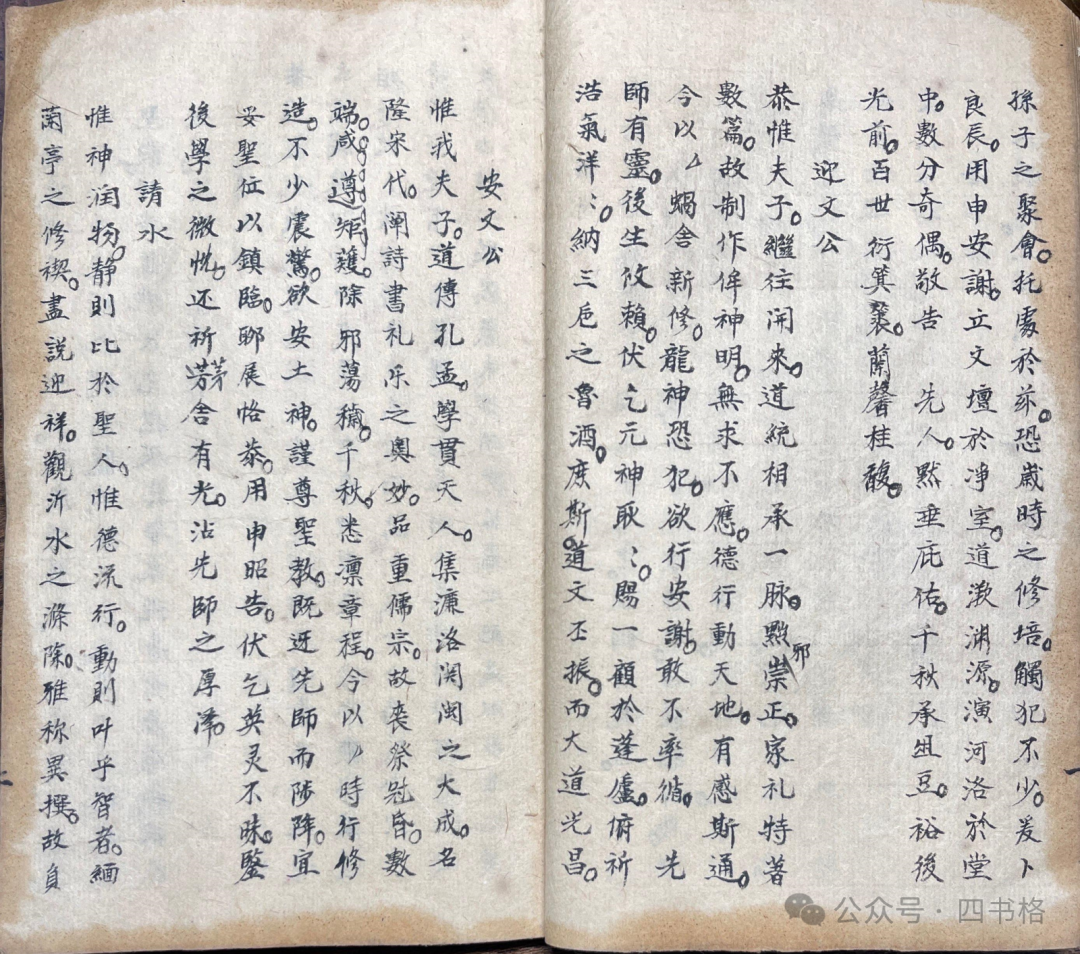 孫子之聚會。托處於茲。恐歲時之修培。觸犯不少。爰卜
良辰。用申安謝。立文壇於凈室。道溯渊源。演河洛於堂
中。數分奇偶。敬告 先人。黙垂庇佑。千秋承俎豆。裕後
光前。百世衍箕裘。蘭馨桂馥。
迎文公
恭惟夫子。繼往開來。道統相承一脉。黜邪崇正。家礼特著
數篇。故制作侔神明。無求不應。德行動天地。有感斯通。
今以〻蝸舍新修。龍神恐犯。欲行安謝。敢不率循。先
師有靈。後生攸賴。伏乞元神耿〻。賜一顧於蓬廬。俯祈
浩氣洋〻。納三卮之魯酒。庶斯道文丕振。而大道光昌。
安文公
惟我夫子。道傳孔孟。學貫天人。集濂洛関閩之大成。名
隆宋代。闡詩書礼乐之奥妙。品重儒宗。故丧祭冠昏。數
端。咸遵矩矱。除邪蕩穢。千秋。悉凛章程。今以〻時行修
造。不少震驚。欲安土神。謹尊聖教。既迓先師而陟降。宜
妥聖位以鎮臨。聊展恪恭。用申昭告。伏乞英灵不昧。鑒
後學之微忱。还祈茅舍有光。沾先師之厚泽。
請水
惟神润物。静則比於聖人。惟德流行。動則叶乎智者。緬
蘭亭之修禊。盡説迎祥。觀沂水之滌除。雅称異撰。故自
公众号·四书格